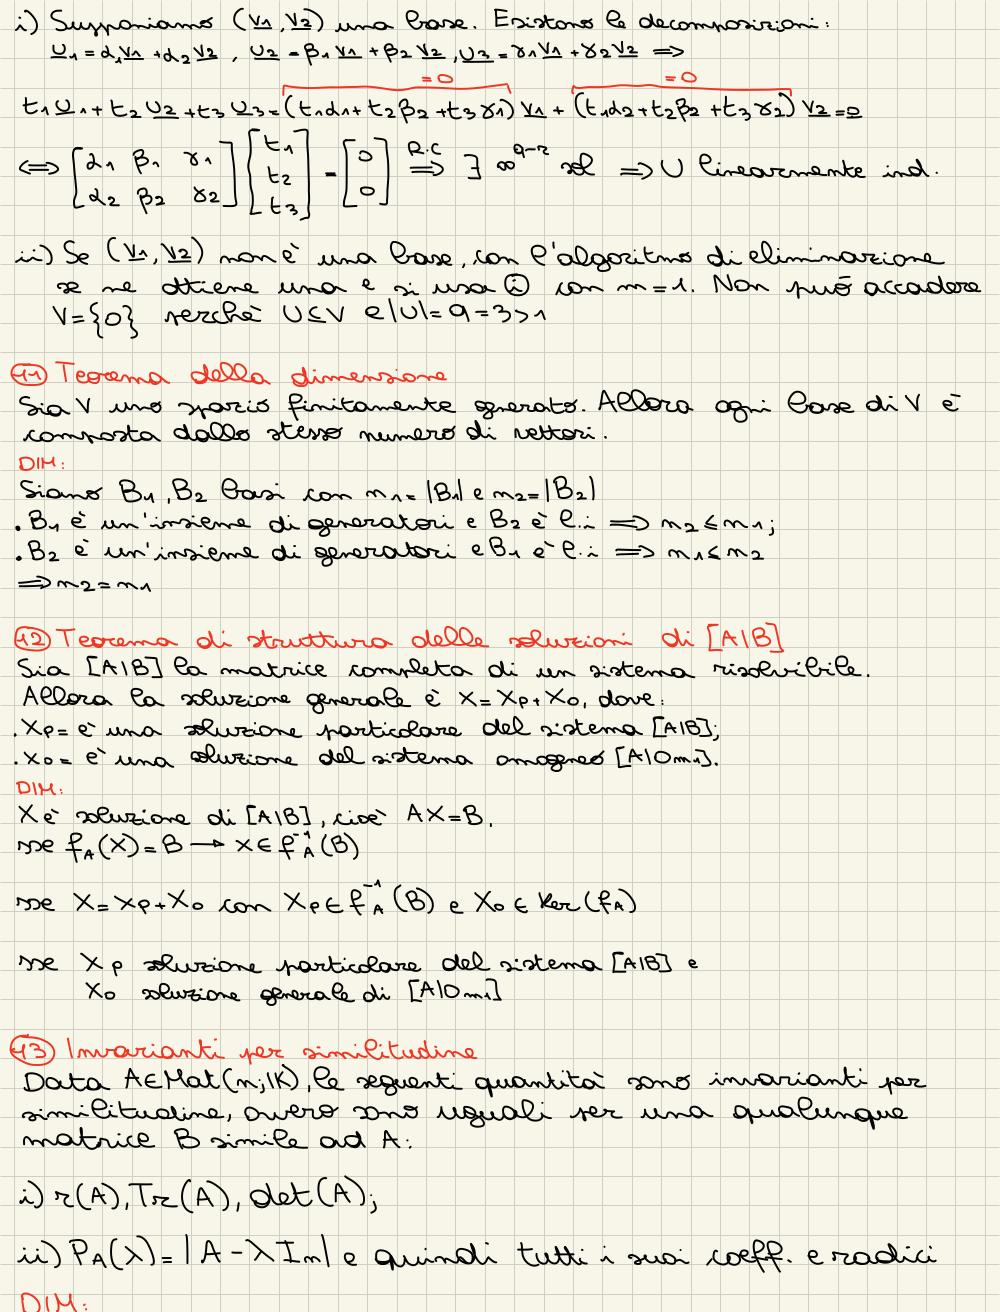 i) Supponiamo (v1, v2) una base. Esistono le decomposizioni:
u1 = α1v1 + α2v2 , u2 = β1v1 + β2v2 , u3 = γ1v1 + γ2v2 ⟹
= 0 = 0
t1u1 + t2u2 + t3u3 = (t1α1 + t2β2 + t3γ1) v1 + (t1α2 + t2β2 + t3γ2) v2 = 0
⟺ [α1 β1 γ1; α2 β2 γ2] [t1; t2; t3] = [0; 0] R.C ⟹ ∃ ∞^(q-r) sol ⟹ U linearmente ind.
ii) Se (v1, v2) non è una base, con l'algoritmo di eliminazione
se ne ottiene una e si usa ⓘ con m = 1. Non può accadere
V = {0} perchè U ⊆ V e |U| = q = 3 > 1
41 Teorema della dimensione
Sia V uno spazio finitamente generato. Allora ogni base di V è
composta dallo stesso numero di vettori.
DIM:
Siano B1, B2 basi con n1 = |B1| e n2 = |B2|
. B1 è un'insieme di generatori e B2 è l.i ⟹ n2 ≤ n1;
. B2 è un'insieme di generatori e B1 è l.i ⟹ n1 ≤ n2
⟹ n2 = n1
42 Teorema di struttura delle soluzioni di [A|B]
Sia [A|B] la matrice completa di un sistema risolvibile.
Allora la soluzione generale è X = Xp + X0, dove:
. Xp = è una soluzione particolare del sistema [A|B];
. X0 = è una soluzione del sistema omogneo [A|0m1].
DIM:
X è soluzione di [A|B], cioè AX = B.
sse fA(X) = B → x ∈ fA⁻¹(B)
sse X = Xp + X0 con Xp ∈ fA⁻¹(B) e X0 ∈ Ker(fA)
sse Xp soluzione particolare del sistema [A|B] e
X0 soluzione generale di [A|0m1]
43 Invarianti per similitudine
Data A ∈ Mat(n; K), le seguenti quantità sono invarianti per
similitudine, ovvero sono uguali per una qualunque
matrice B simile ad A:
i) r(A), Tr(A), det(A);
ii) PA(λ) = |A - λIn| e quindi tutti i suoi coeff. e radici
DIM: